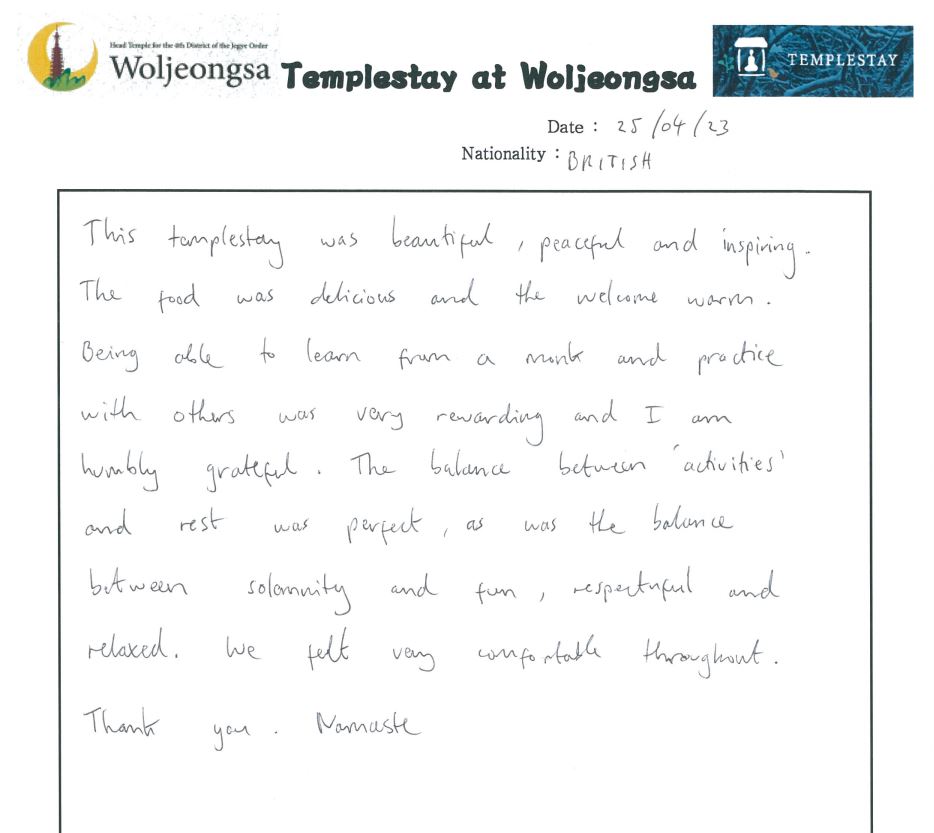 Head Temple for the 4th District of the Jogye Order
Woljeongsa
Templestay at Woljeongsa
TEMPLESTAY
Date : 25/04/23
Nationality : BRITISH
This templestay was beautiful, peaceful and inspiring.
The food was delicious and the welcome warm.
Being able to learn from a monk and practice
with others was very rewarding and I am
humbly grateful. The balance between 'activities'
and rest was perfect, as was the balance
between solemnity and fun, respectuful and
relaxed. We felt very comfortable throughout.
Thank you. Namaste